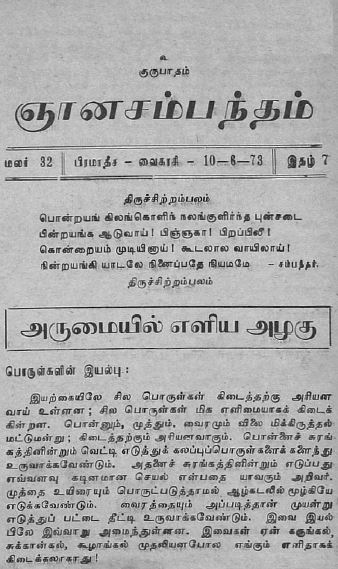 உ
குருபாதம்
ஞானசம்பந்தம்
மலர் 32 பிரமாதீச - வைகாசி - 10-6-73 இதழ் 7
திருச்சிற்றம்பலம்
பொன்றயங் கிலங்கொளிந் நலங்குளிர்ந்த புன்சடை
பின்றயங்க ஆடுவாய்! பிஞ்ஞகா! பிறப்பிலீ!
கொன்றையம் முடியினாய்! கூடலால வாயிலாய்!
நின்றயங்கி யாடலே நினைப்பதே நியமமே - சம்பந்தர்.
திருச்சிற்றம்பலம்
அருமையில் எளிய அழகு
பொருள்களின் இயல்பு:
இயற்கையிலே சில பொருள்கள் கிடைத்தற்கு அரியன
வாய் உள்ளன; சில பொருள்கள் மிக எளிமையாகக் கிடைக்
கின்றன. பொன்னும், முத்தும், வைரமும் விலை மிக்கிருத்தல்
மட்டுமன்று; கிடைத்தற்கும் அரியனவாகும். பொன்னைச் சுரங்
கத்தினின்றும் வெட்டி எடுத்துக் கலப்புப்பொருள்களைக் களைந்து
உருவாக்கவேண்டும். அதனைச் சுரங்கத்தினின்றும் எடுப்பது
எவ்வளவு கடினமான செயல் என்பதை யாவரும் அறிவர்.
முத்தை உயிரையும் பொருட்படுத்தாமல் ஆழ்கடலில் மூழ்கியே
எடுக்கவேண்டும். வைரத்தையும் அப்படித்தான் முயன்று
எடுத்துப் பட்டை தீட்டி உருவாக்கவேண்டும். இவை இயல்
பிலே இவ்வாறு அமைந்துள்ளன. இவைகள் ஏன் கருங்கல்,
சுக்கான்கல், கூழாங்கல் முதலியனபோல எங்கும் எளிதாகக்
கிடைக்கலாகாது!